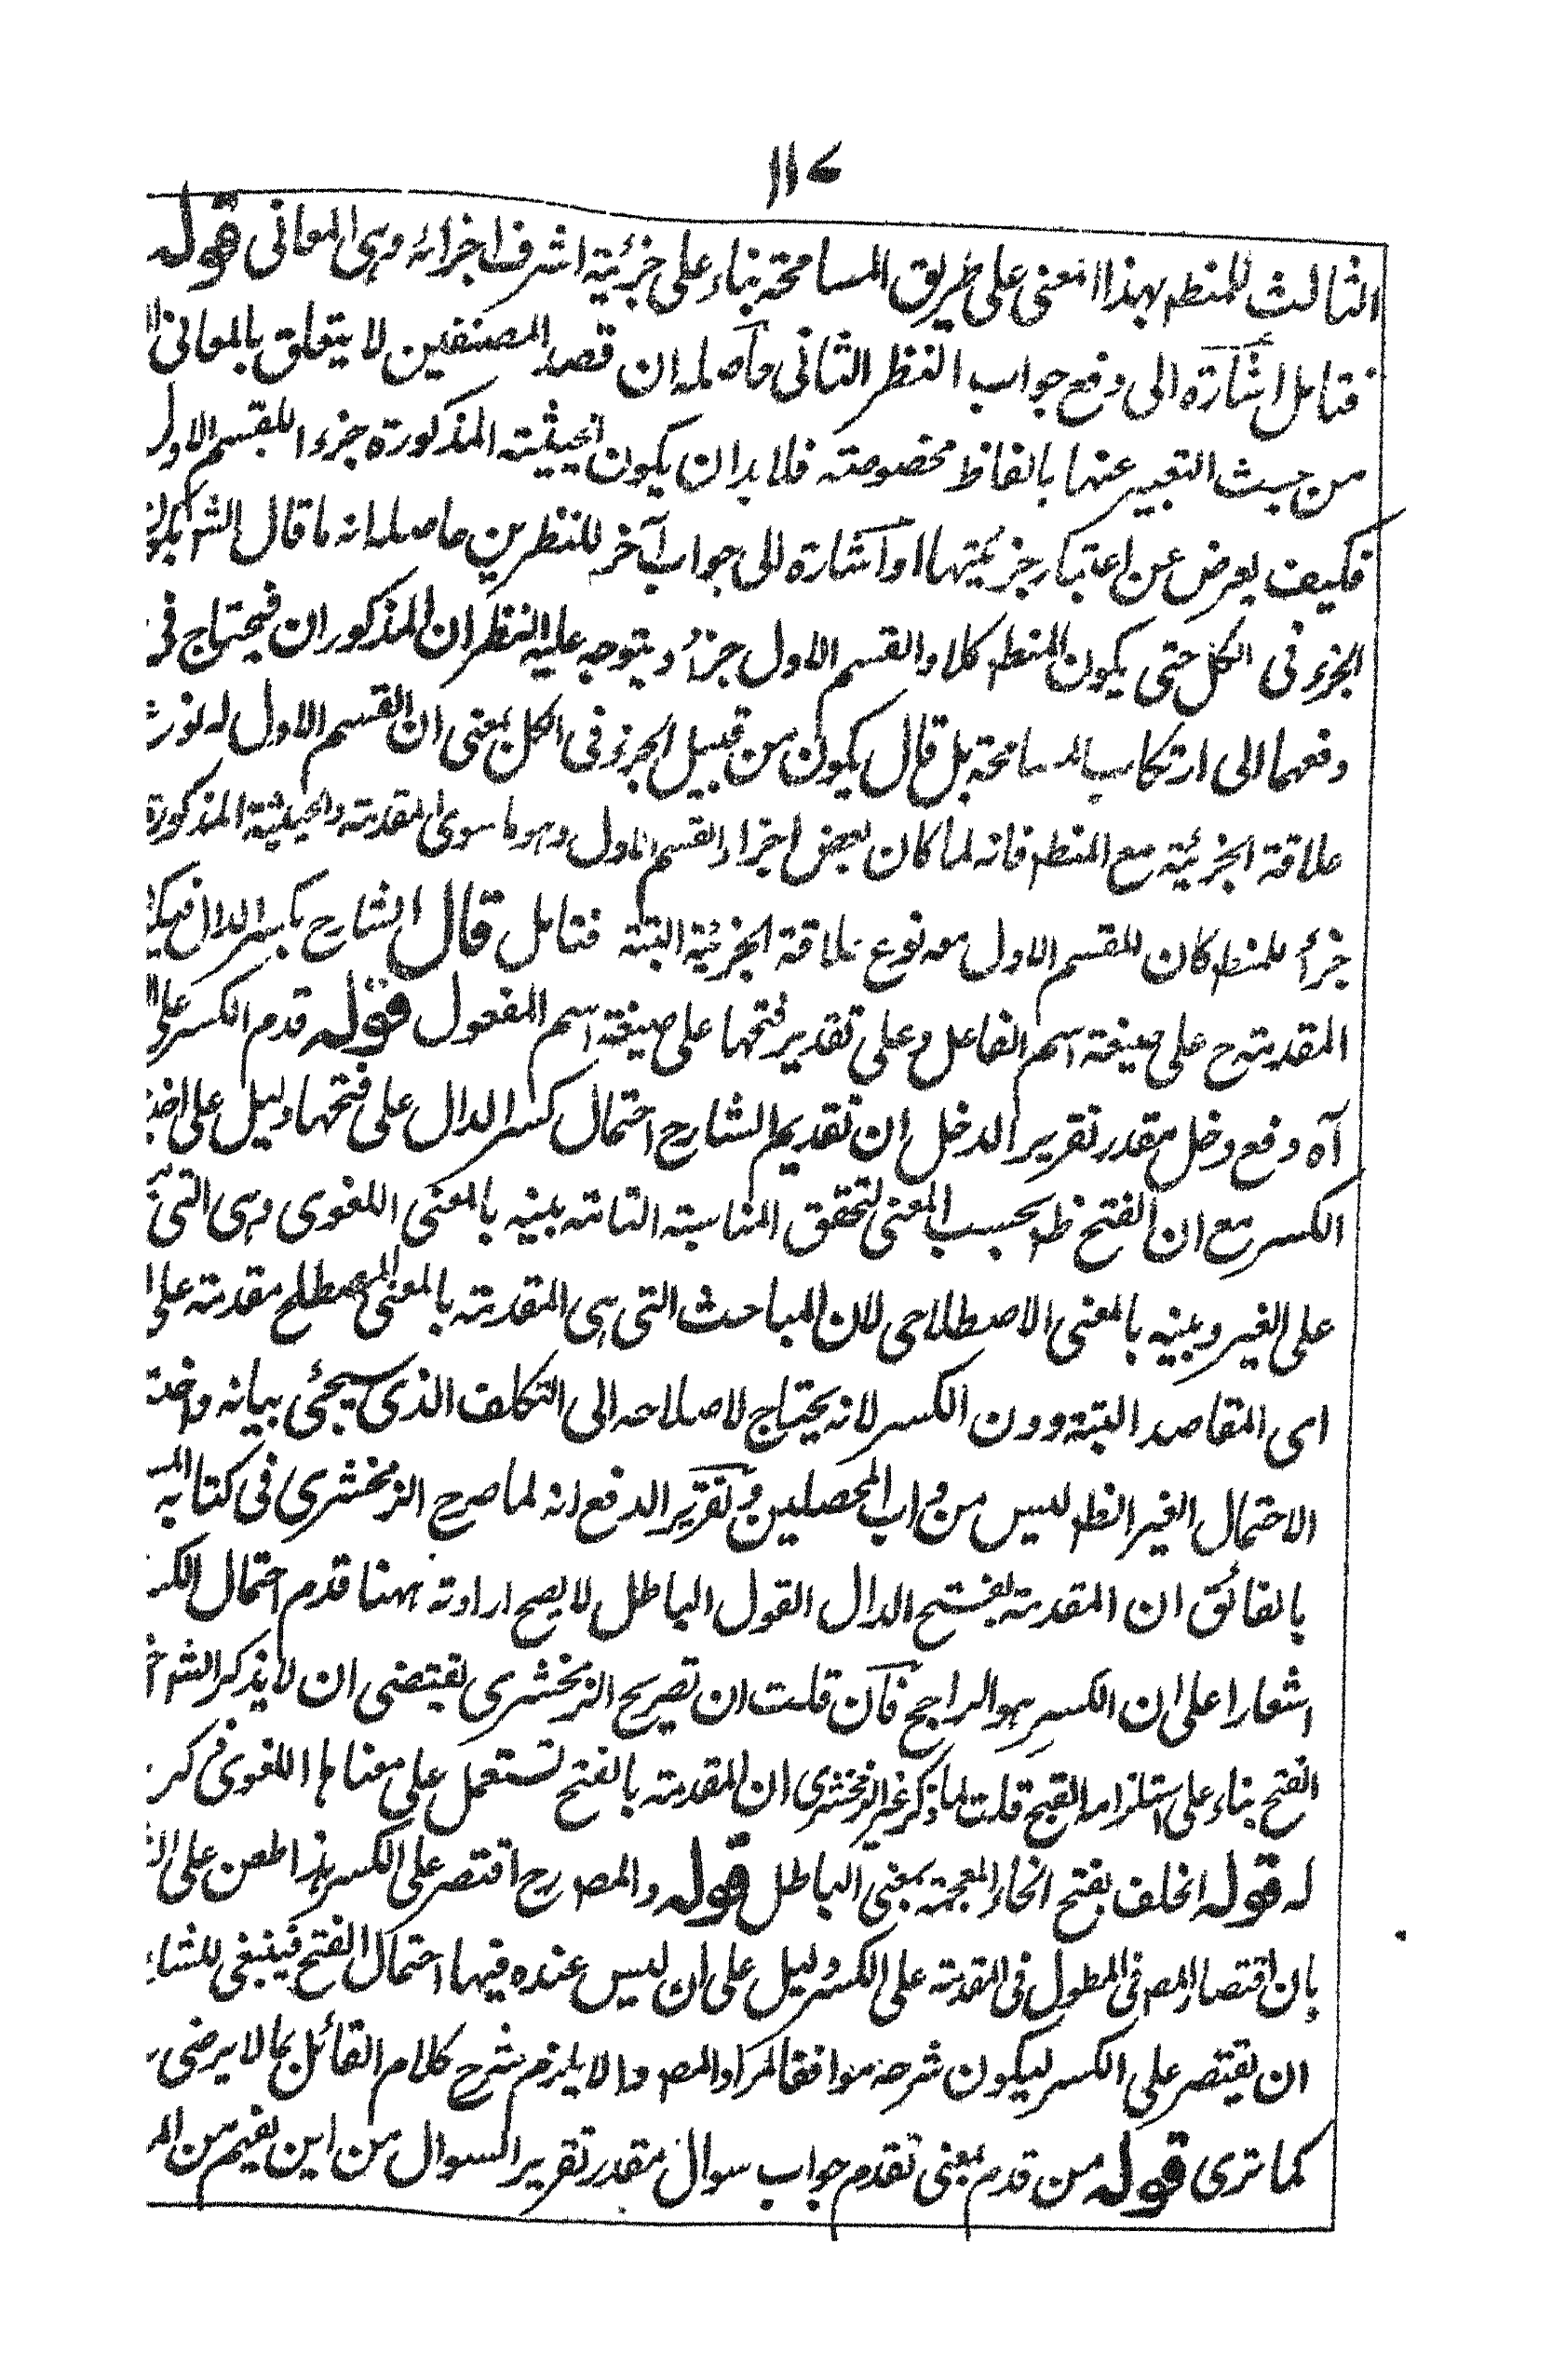 ١١٧
الثالث للمنطہ بهذا المعنى على طريق المسامحة بناء على جزئية اشرف اجزائه وهى المعانى قوله
فتامل اشارة الى دفع جواب النظر الثانى حاصله ان قصد المصنفين لا يتعلق بالمعانى
من حيث التعبير عنها بالفاظ مخصوصة فلا بد ان يكون الحيثية المذكورة جزءا للقسم الاول
فكيف يعرض عن اعتبار جزئيتها او اشارة الى جواب آخر للنظرين حاصله انه ما قال الشہ
الجزء فى الكل حتى يكون المنطہ كلا والقسم الاول جزأ ويتوجه عليه النظران المذكوران فيحتاج فى
دفعهما الى ارتكاب المسامحة بل قال يكون من قبيل الجزء فى الكل بمعنى ان القسم الاول له نوع
علاقة الجزئية مع المنطہ فانه لما كان بعض اجزاء القسم الاول وهو ما سوى المقدمة والحيثية المذكورة
جزأ للمنطہ كان للقسم الاول معه نوع علاقة الجزئية البتة فتامل قال الشارح بكسر الدال
المقدمة ح على صيغة اسم الفاعل وعلى تقدير فتحها على صيغة اسم المفعول قوله قدم الكسر على
آه دفع دخل مقدر تقرير الدخل ان تقديم الشارح احتمال كسر الدال على فتحها دليل على
الكسر مع ان الفتح ظہ بحسب المعنى لتحقق المناسبة التامة بينه بالمعنى اللغوى وهى التى
على الغير وبينه بالمعنى الاصطلاحى لان المباحث التى هى المقدمة بالمعنى المصطلح مقدمة على
اى المقاصد البتة دون الكسر لانه يحتاج لاصلاحه الى التكلف الذى سيجئى بيانه و
الاحتمال الغير الظہ ليس من داب المحصلين وتقرير الدفع انه لما صرح الزمخشرى فى كتابه
بالفائق ان المقدمة بفتح الدال القول الباطل لا يصح ارادته ههنا قدم احتمال
اشعارا على ان الكسر هو الراجح فان قلت ان تصريح الزمخشرى يقتضى ان لا يذكر الشہ
الفتح بناء على استلزامه القبح قلت لما ذكر غير الزمخشرى ان المقدمة بالفتح تستعمل على معناها اللغوى
له قوله الخلف بفتح الخاء المعجمة بمعنى الباطل قوله والمصہ رح اقتصر على الكسر هذا طعن على
بان اقتصار المصہ فى المطول فى المقدمة على الكسر دليل على ان ليس عنده فيها احتمال الفتح فينبغى
ان يقتصر على الكسر ليكون شرحه موافقا لمراد المصہ والا يلزم شرح كلام القائل بما لا يرضى
كما ترى قوله من قدم بمعنى تقدم جواب سوال مقدر تقرير السوال من اين يفهم من